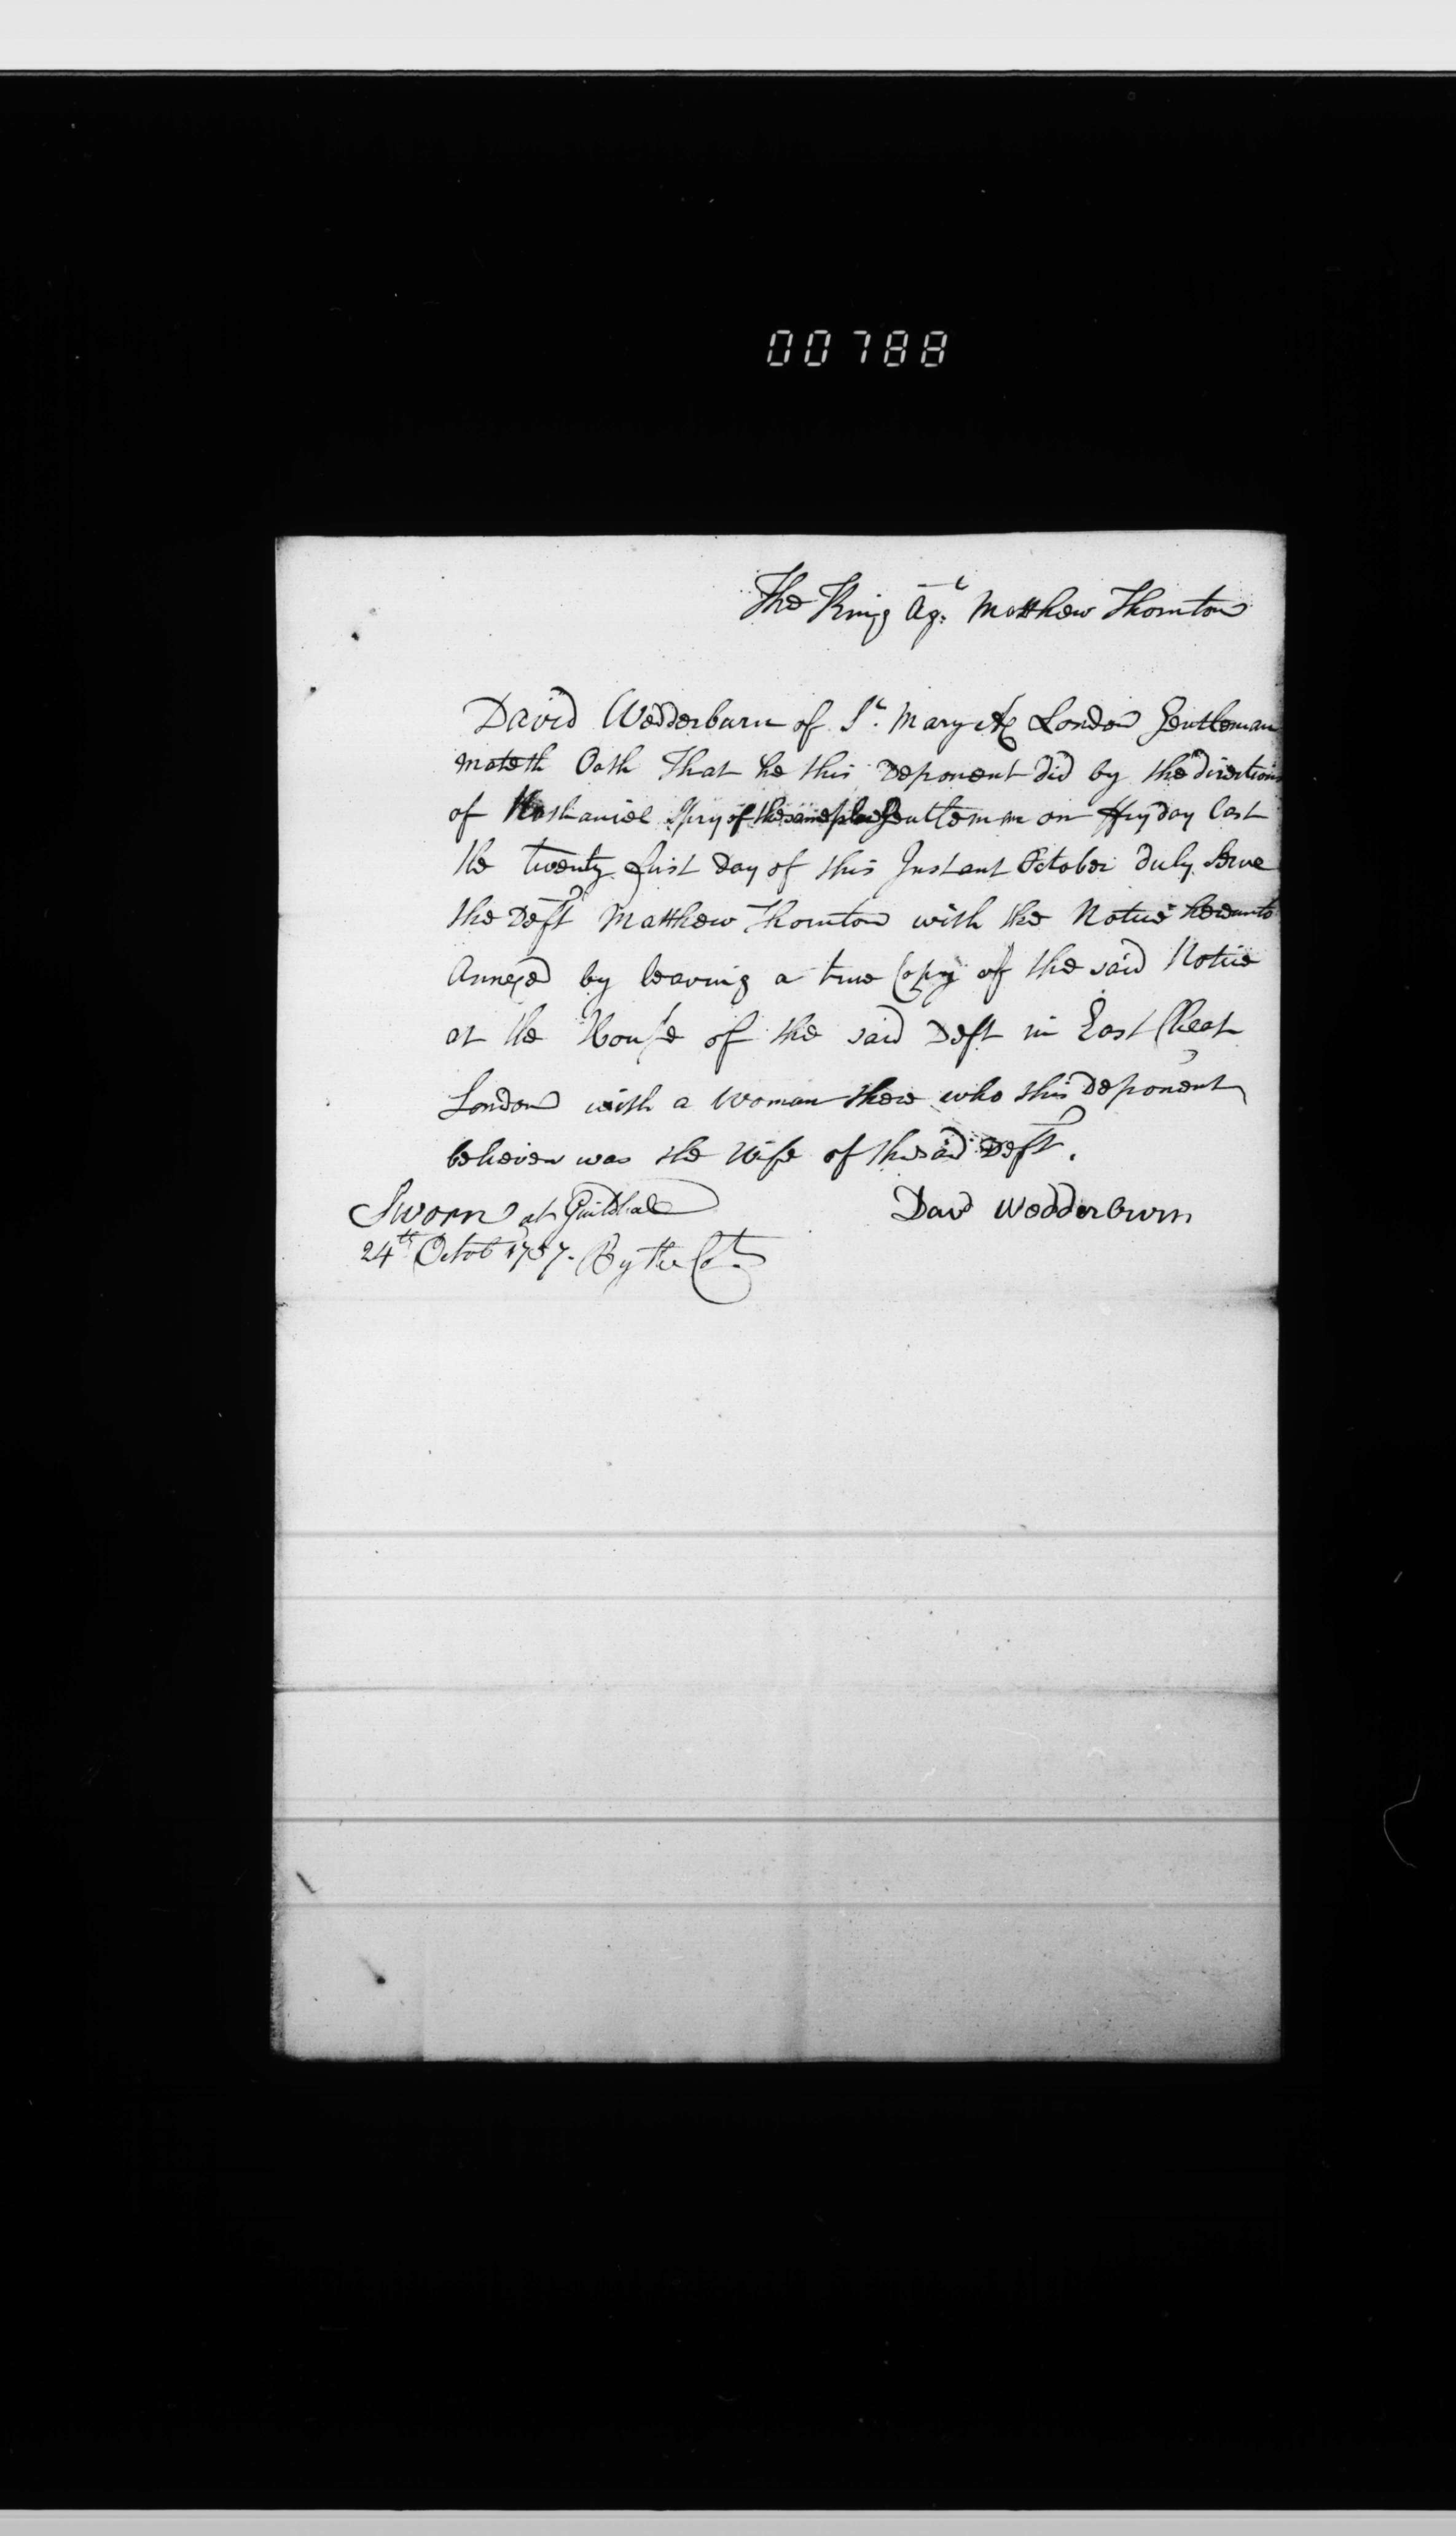 00788
The King agt. Matthew Thornton
David Wedderburn of St. Mary Ax London Gentleman
maketh Oath That he this Deponent did by the directions
of Nathaniel Spry of the same place Gentleman on Fryday last
the twenty first Day of this Instant October duly serve
the Deft Matthew Thornton with the Notice hereunto
Annexed by leaving a true Copy of the said Notice
at the House of the said Deft in East Cheap
London with a Woman there who this Deponent
believes was the Wife of the said Deft.
Sworn at Guildhall
24th Octob 1757. By the Cot.
Davd Wedderburn